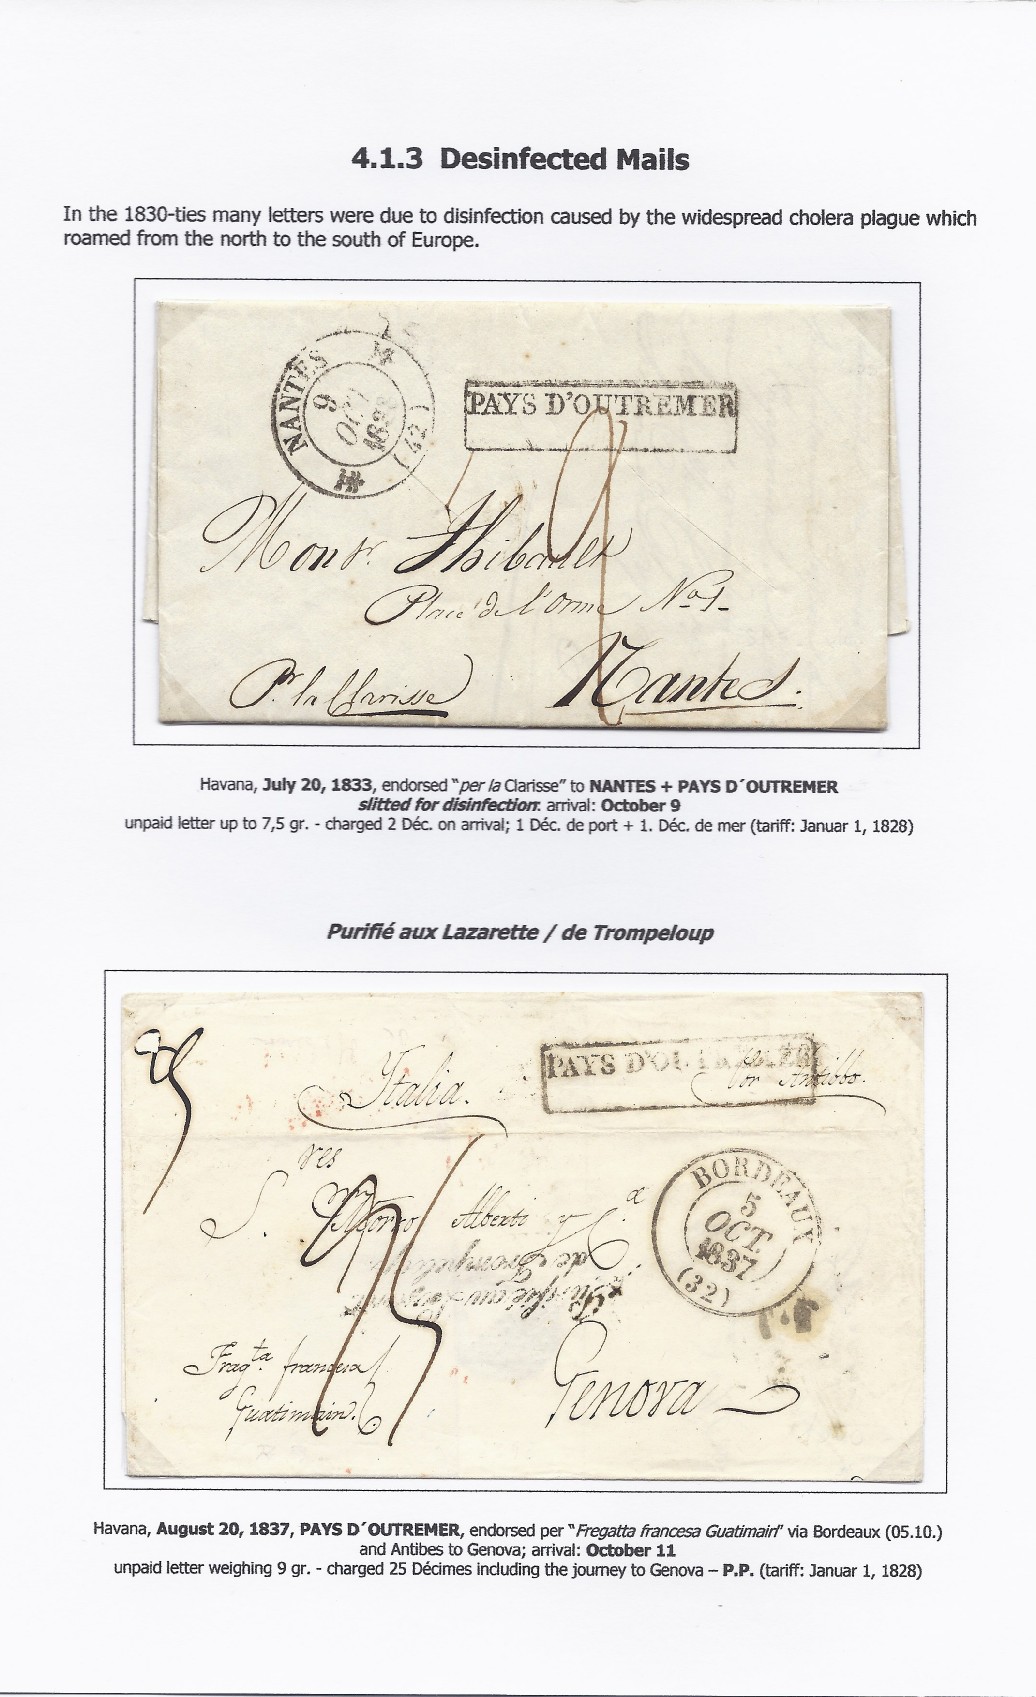 4.1.3 Desinfected Mails
In the 1830-ties many letters were due to disinfection caused by the widespread cholera plague which
roamed from the north to the south of Europe.
NANTES
9
OCT
(42)
PAYS D'OUTREMER
Monsr. Thibault
Place de l'Orme No 1
Pr la Clarisse
Nantes.
Havana, July 20, 1833, endorsed "per la Clarisse" to NANTES + PAYS D´OUTREMER
slitted for disinfection: arrival: October 9
unpaid letter up to 7,5 gr. - charged 2 Déc. on arrival; 1 Déc. de port + 1. Déc. de mer (tariff: Januar 1, 1828)
Purifié aux Lazarette / de Trompeloup
PAYS D'OUTREMER
Italia.
por Antibbo.
res
S.
Alberti y Ca
BORDEAUX
5
OCT.
1837
(32)
de Trompeloup
Purifié au Lazaret
Fragta francesa
Guatimain.
Genova
Havana, August 20, 1837, PAYS D´OUTREMER, endorsed per "Fregatta francesa Guatimain" via Bordeaux (05.10.)
and Antibes to Genova; arrival: October 11
unpaid letter weighing 9 gr. - charged 25 Décimes including the journey to Genova – P.P. (tariff: Januar 1, 1828)